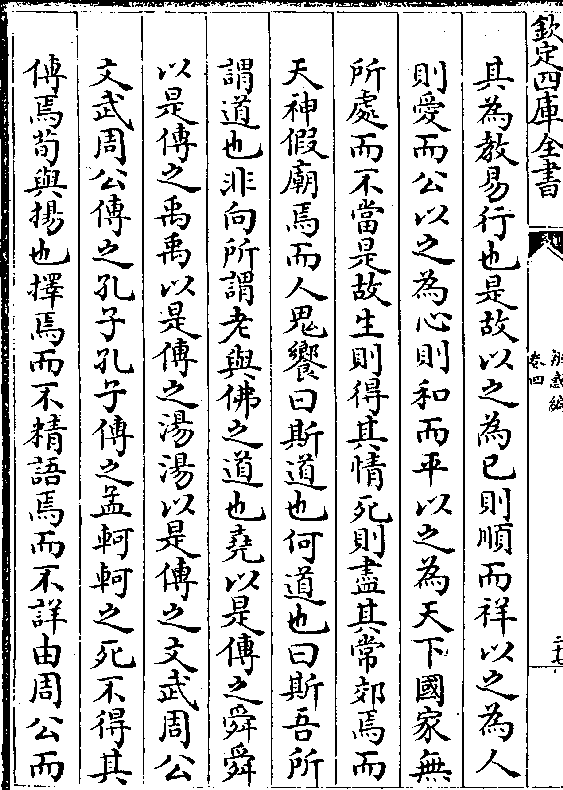 欽定四庫全書
卷四
二十七
其為教易行也是故以之為已則順而祥以之為人
則愛而公以之為心則和而平以之為天下國家無
所處而不當是故生則得其情死則盡其常郊焉而
天神假廟焉而人鬼饗曰斯道也何道也曰斯吾所
謂道也非向所謂老與佛之道也堯以是傳之舜舜
以是傳之禹禹以是傳之湯湯以是傳之文武周公
文武周公傳之孔子孔子傳之孟軻軻之死不得其
傳焉荀與揚也擇焉而不精語焉而不詳由周公而